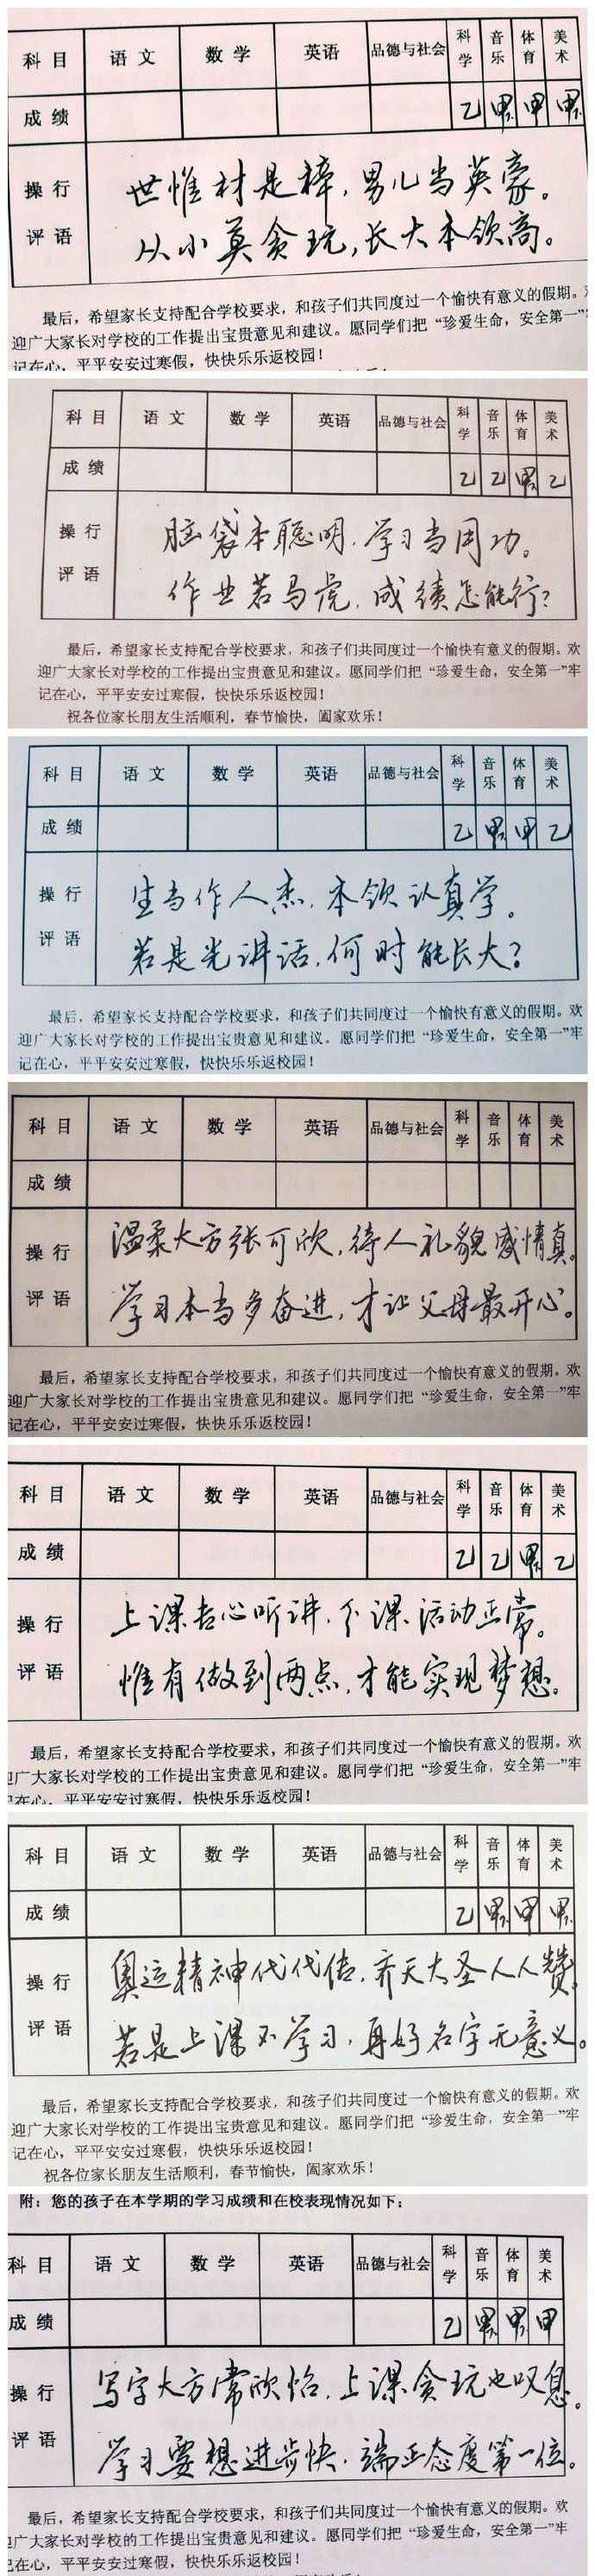 科目 语文 数学 英语 品德与社会 科学 音乐 体育 美术
成绩 乙 甲 甲 甲
操行评语
世惟材是梓，男儿当英豪。
从小莫贪玩，长大本领高。
最后，希望家长支持配合学校要求，和孩子们共同度过一个愉快有意义的假期。
迎广大家长对学校的工作提出宝贵意见和建议。愿同学们把“珍爱生命，安全第一”
记在心，平平安安过寒假，快快乐乐返校园！
科目 语文 数学 英语 品德与社会 科学 音乐 体育 美术
成绩 乙 乙 甲 乙
操行评语
脑袋本聪明，学习当用功。
作业若马虎，成绩怎能行？
最后，希望家长支持配合学校要求，和孩子们共同度过一个愉快有意义的假期。欢
迎广大家长对学校的工作提出宝贵意见和建议。愿同学们把“珍爱生命，安全第一”牢
记在心，平平安安过寒假，快快乐乐返校园！
祝各位家长朋友生活顺利，春节愉快，阖家欢乐！
科目 语文 数学 英语 品德与社会 科学 音乐 体育 美术
成绩 乙 甲 甲 乙
操行评语
生当作人杰，本领认真学。
若是光讲话，何时能长大？
最后，希望家长支持配合学校要求，和孩子们共同度过一个愉快有意义的假期。欢
迎广大家长对学校的工作提出宝贵意见和建议。愿同学们把“珍爱生命，安全第一”牢
记在心，平平安安过寒假，快快乐乐返校园！
科目 语文 数学 英语 品德与社会 科学 音乐 体育 美术
成绩
操行评语
温柔大方张可欣，待人礼貌感情真。
学习本当多奋进，才让父母最开心。
最后，希望家长支持配合学校要求，和孩子们共同度过一个愉快有意义的假期。欢
迎广大家长对学校的工作提出宝贵意见和建议。愿同学们把“珍爱生命，安全第一”牢
记在心，平平安安过寒假，快快乐乐返校园！
科目 语文 数学 英语 品德与社会 科学 音乐 体育 美术
成绩 乙 乙 甲 乙
操行评语
上课专心听讲，下课活动正常。
惟有做到两点，才能实现梦想。
最后，希望家长支持配合学校要求，和孩子们共同度过一个愉快有意义的假期。欢
广大家长对学校的工作提出宝贵意见和建议。愿同学们把“珍爱生命，安全第一”牢
记在心，平平安安过寒假，快快乐乐返校园！
科目 语文 数学 英语 品德与社会 科学 音乐 体育 美术
成绩 乙 甲 甲 甲
操行评语
奥运精神代代传，齐天大圣人人赞。
若是上课不学习，再好名字无意义。
最后，希望家长支持配合学校要求，和孩子们共同度过一个愉快有意义的假期。欢
迎广大家长对学校的工作提出宝贵意见和建议。愿同学们把“珍爱生命，安全第一”牢
记在心，平平安安过寒假，快快乐乐返校园！
祝各位家长朋友生活顺利，春节愉快，阖家欢乐！
附：您的孩子在本学期的学习成绩和在校表现情况如下：
科目 语文 数学 英语 品德与社会 科学 音乐 体育 美术
成绩 乙 甲 甲 甲
操行评语
写字大方常欣怡，上课贪玩也叹息。
学习要想进步快，端正态度第一位。
最后，希望家长支持配合学校要求，和孩子们共同度过一个愉快有意义的假期。欢
广大家长对学校的工作提出宝贵意见和建议。愿同学们把“珍爱生命，安全第一”牢
记在心，平平安安过寒假，快快乐乐返校园！